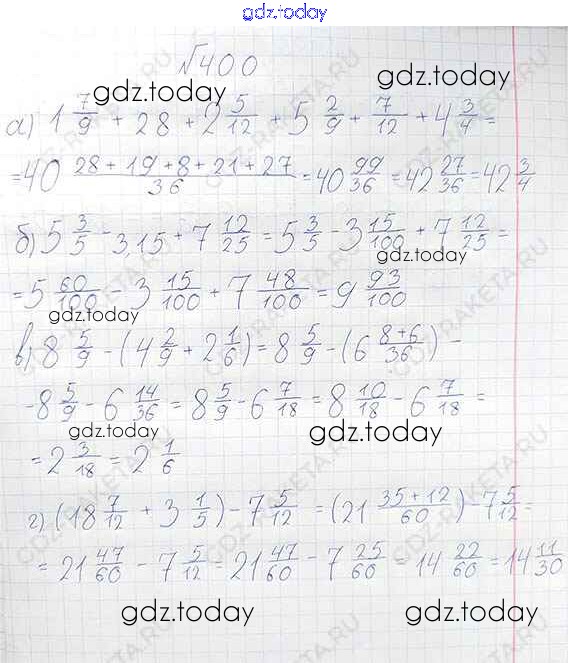 gdz.today
№400
gdz.today gdz.today
а) 1 7/9 + 28 + 2 5/12 + 5 2/9 + 7/12 + 4 3/4 =
= 40 (28 + 19 + 8 + 21 + 27)/36 = 40 99/36 = 42 27/36 = 42 3/4
б) 5 3/5 - 3,15 + 7 12/25 = 5 3/5 - 3 15/100 + 7 12/25 =
gdz.today
= 5 60/100 - 3 15/100 + 7 48/100 = 9 93/100
gdz.today
в) 8 5/9 - (4 2/9 + 2 1/6) = 8 5/9 - (6 (8+6)/36) -
- 8 5/9 - 6 14/36 = 8 5/9 - 6 7/18 = 8 10/18 - 6 7/18 =
gdz.today gdz.today
= 2 3/18 = 2 1/6
г) (18 7/12 + 3 1/5) - 7 5/12 = (21 (35 + 12)/60) - 7 5/12 =
= 21 47/60 - 7 5/12 = 21 47/60 - 7 25/60 = 14 22/60 = 14 11/30
gdz.today gdz.today
GDZ-RAKETA.RU